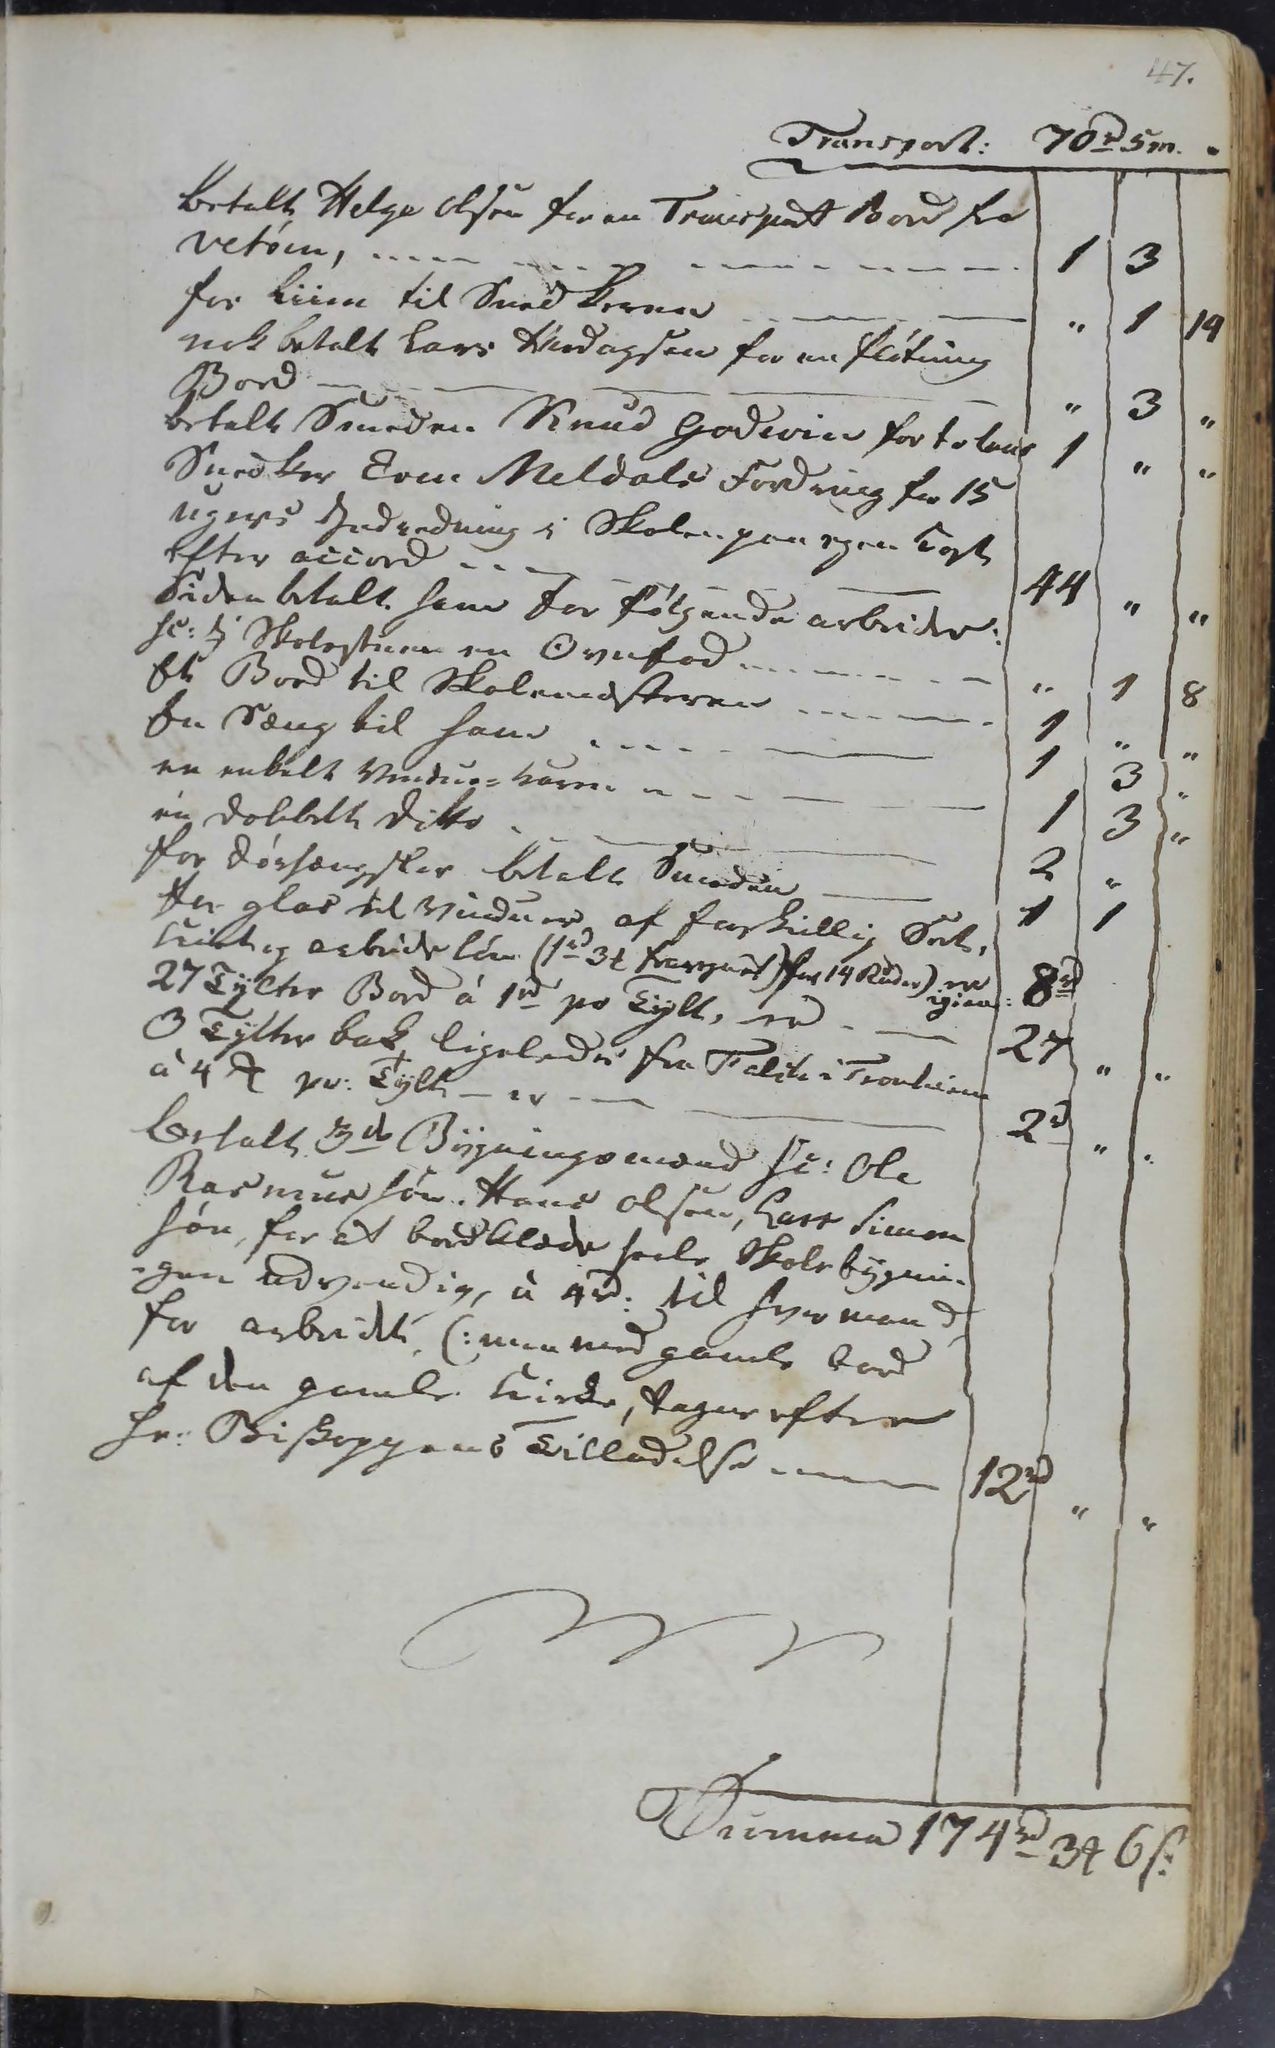 47.
Transport: 70rd 5m. "
betalt Helge Olsen for en Transport Bord fra
Vetóen, 1 3
for Liim til Snedkeren " 1 14
nok betalt Lars for en flótning
Bord " 3 "
betalt Smeden Knud Godwin for 1 " "
Snedker Even Meldals Fordring for 15
ugers Indredning i Skolen paa egen Kost
efter accord 44 " "
Siden betalt ham for følgende arbeider:
sc: i Skolestuen en Ovnfod " 1 8
Et Bord til Skolemesteren 1 " "
En Seng til ham 1 3 "
en enkelt Vindues karm 1 3 "
én dobbelt ditto 2 "
for dórhængsler betalt Smeden 1 1
for glas til Vinduer af forskillig Sort,
Kitt og arbeidslón (1rd 3# fraregnet) for 14 Ruder) er igien: 8rd
27 Tylter Bord á 1rd pr Tylt, er 27 " "
3 Tylter bak ligeledes fra i Tronhiem
à 4 # pr: Tylt er 2rd " "
betalt 3de Bygningsmænd sc: Ole
Rasmussón. Hans Olsen, Lars Simon
són, for at bordklæde heele Skolebygnin-
-gen udvendig, à 4rd: til hver mand
for arbeidet, (: men med gamle bord
af den gamle Kirke, tagne efter
Hr: Biskoppens Tilladelse 12rd " "
Summa 174rd 3# 6s: